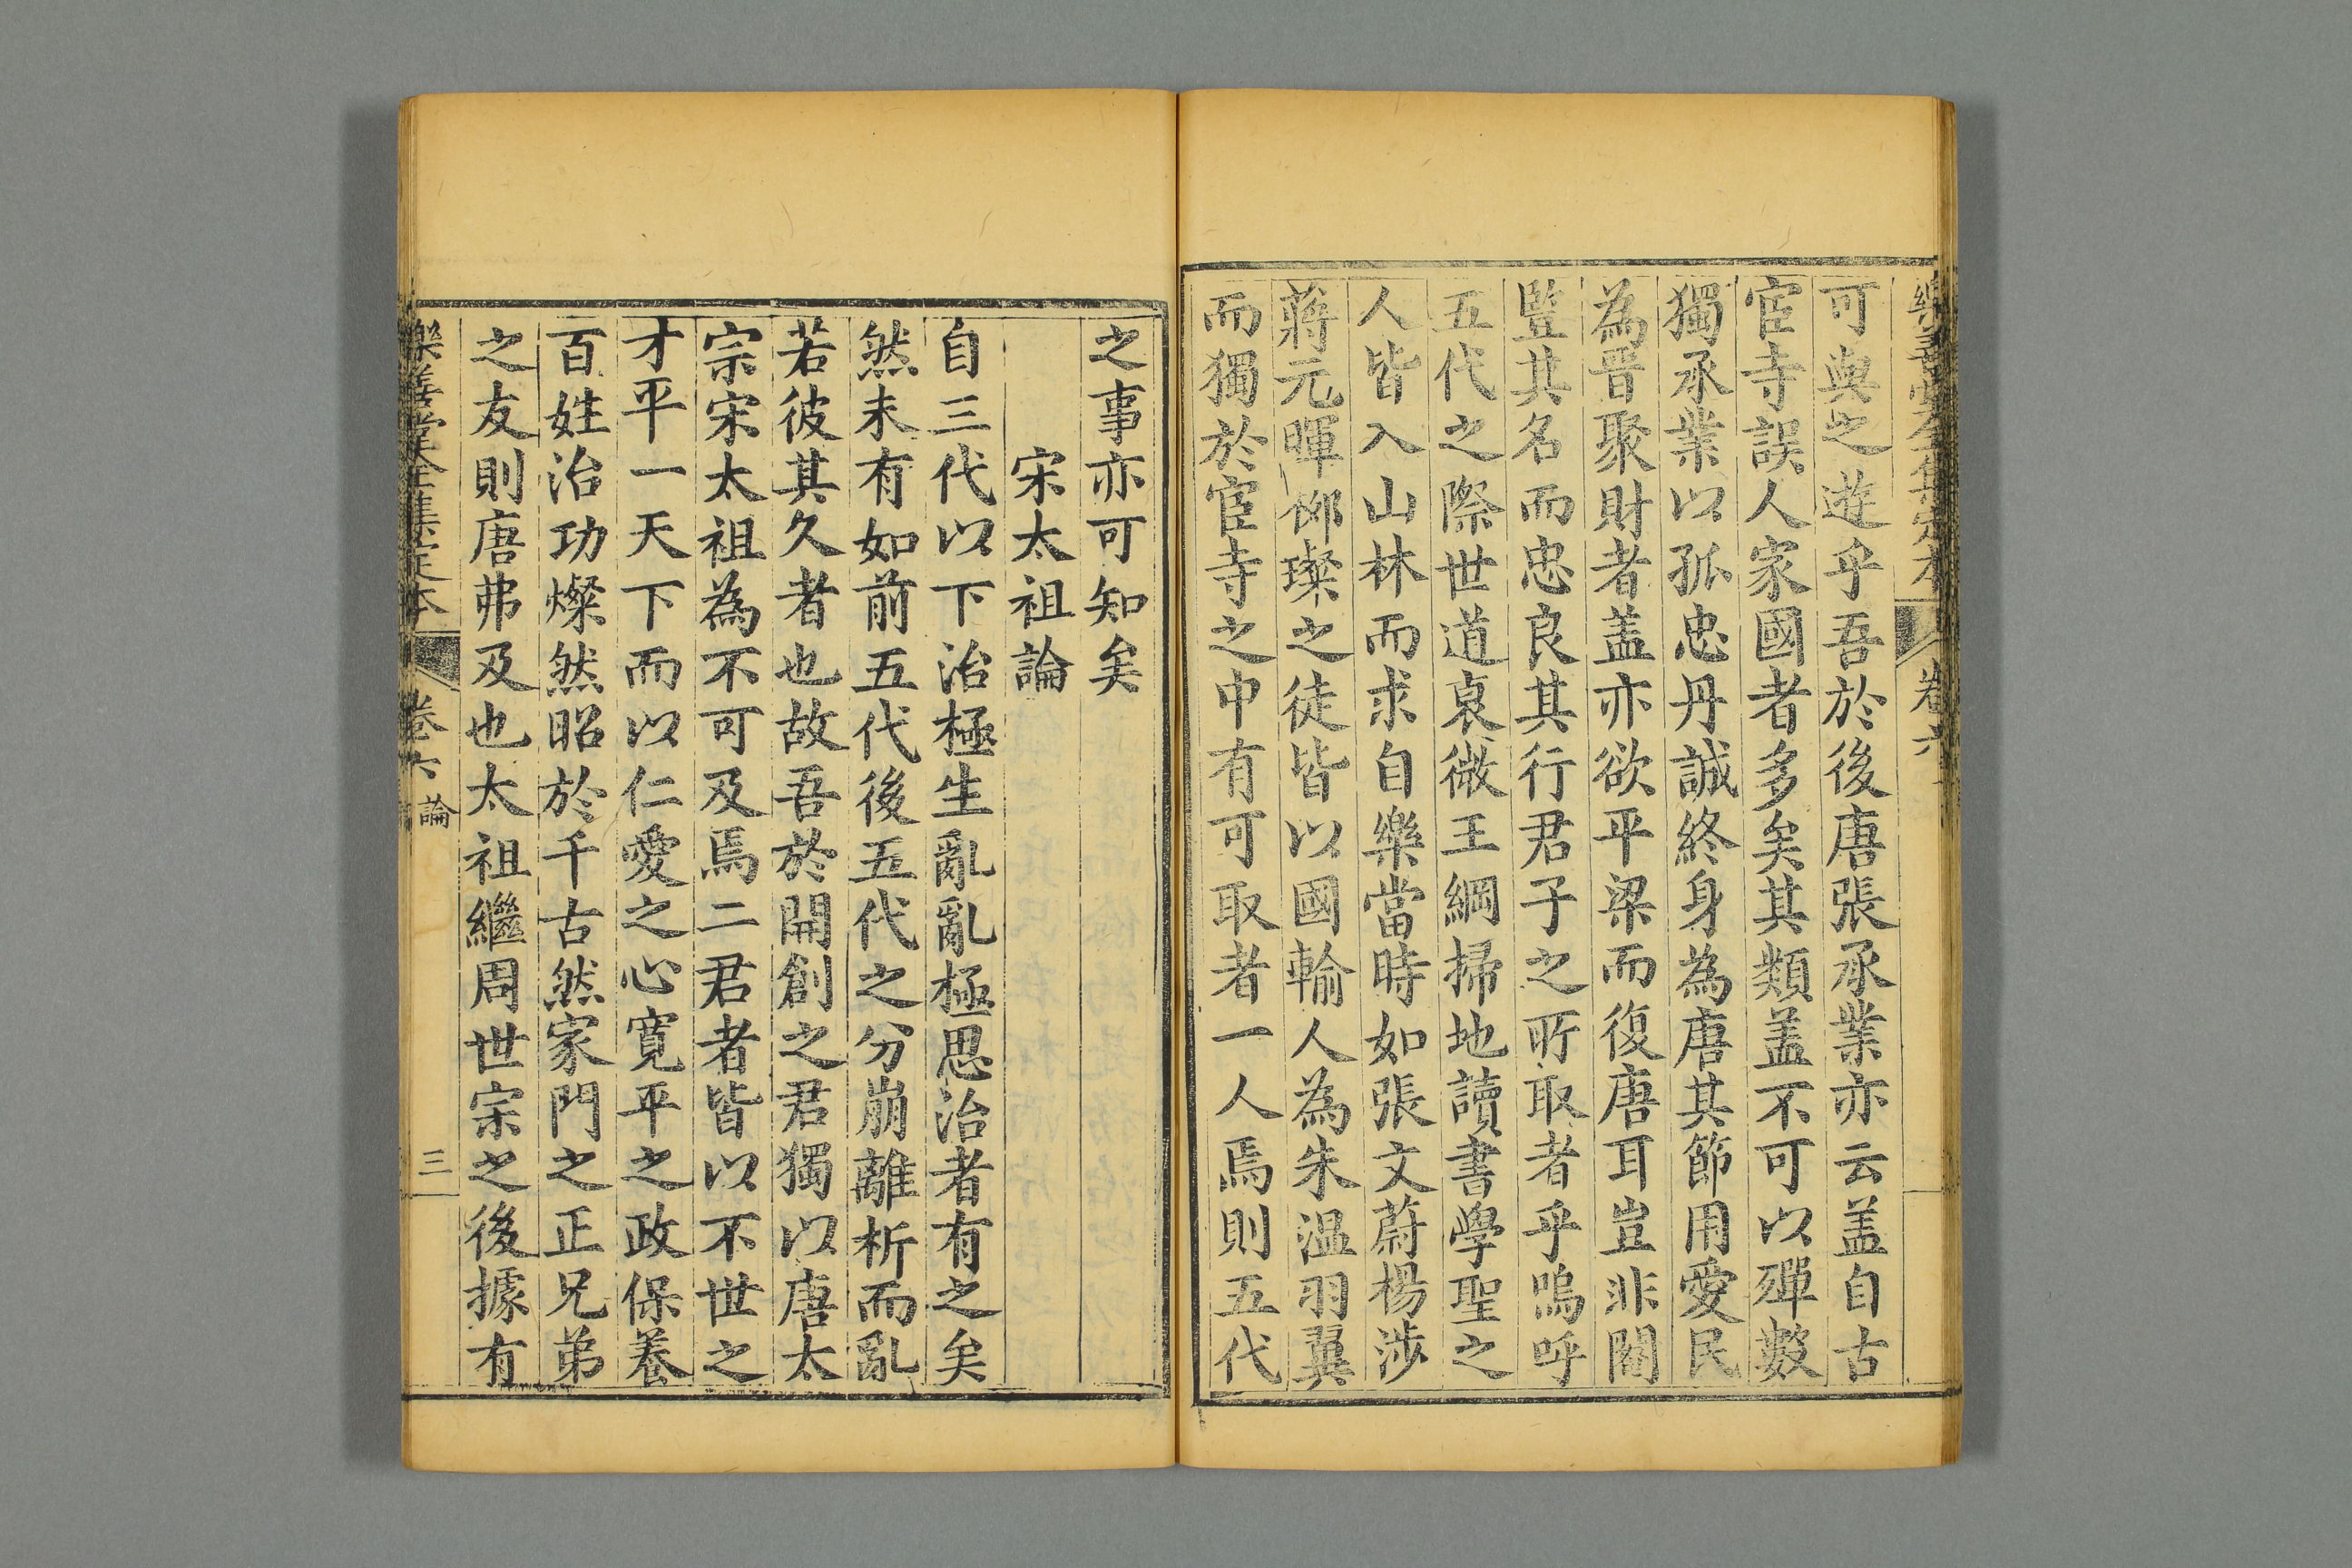 樂善堂全集定本 卷六
可與之遊乎吾於後唐張承業亦云盖自古
宦寺誤人家國者多矣其類盖不可以殫數
獨承業以孤忠丹誠終身為唐其節用愛民
為晉聚財者盖亦欲平梁而復唐耳豈非閹
豎其名而忠良其行君子之所取者乎嗚呼
五代之際世道衰微王綱掃地讀書學聖之
人皆入山林而求自樂當時如張文蔚楊涉
蔣元暉柳璨之徒皆以國輸人為朱溫羽翼
而獨於宦寺之中有可取者一人焉則五代
之事亦可知矣
宋太祖論
自三代以下治極生亂亂極思治者有之矣
然未有如前五代後五代之分崩離析而亂
若彼其久者也故吾於開創之君獨以唐太
宗宋太祖為不可及焉二君者皆以不世之
才平一天下而以仁愛之心寬平之政保養
百姓治功燦然昭於千古然家門之正兄弟
之友則唐弗及也太祖繼周世宗之後據有
樂善堂全集定本 卷六 論 三